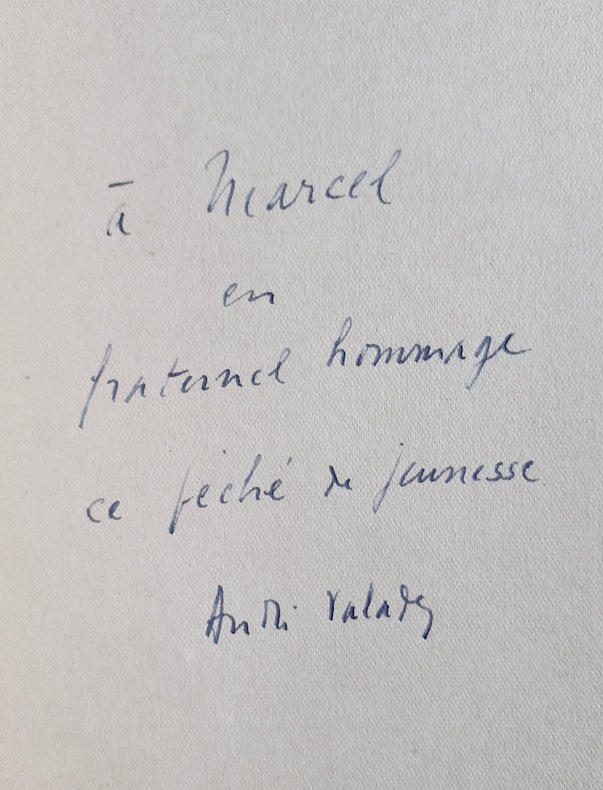 à Marcel
en
fraternel hommage
ce péché de jeunesse
André Valady